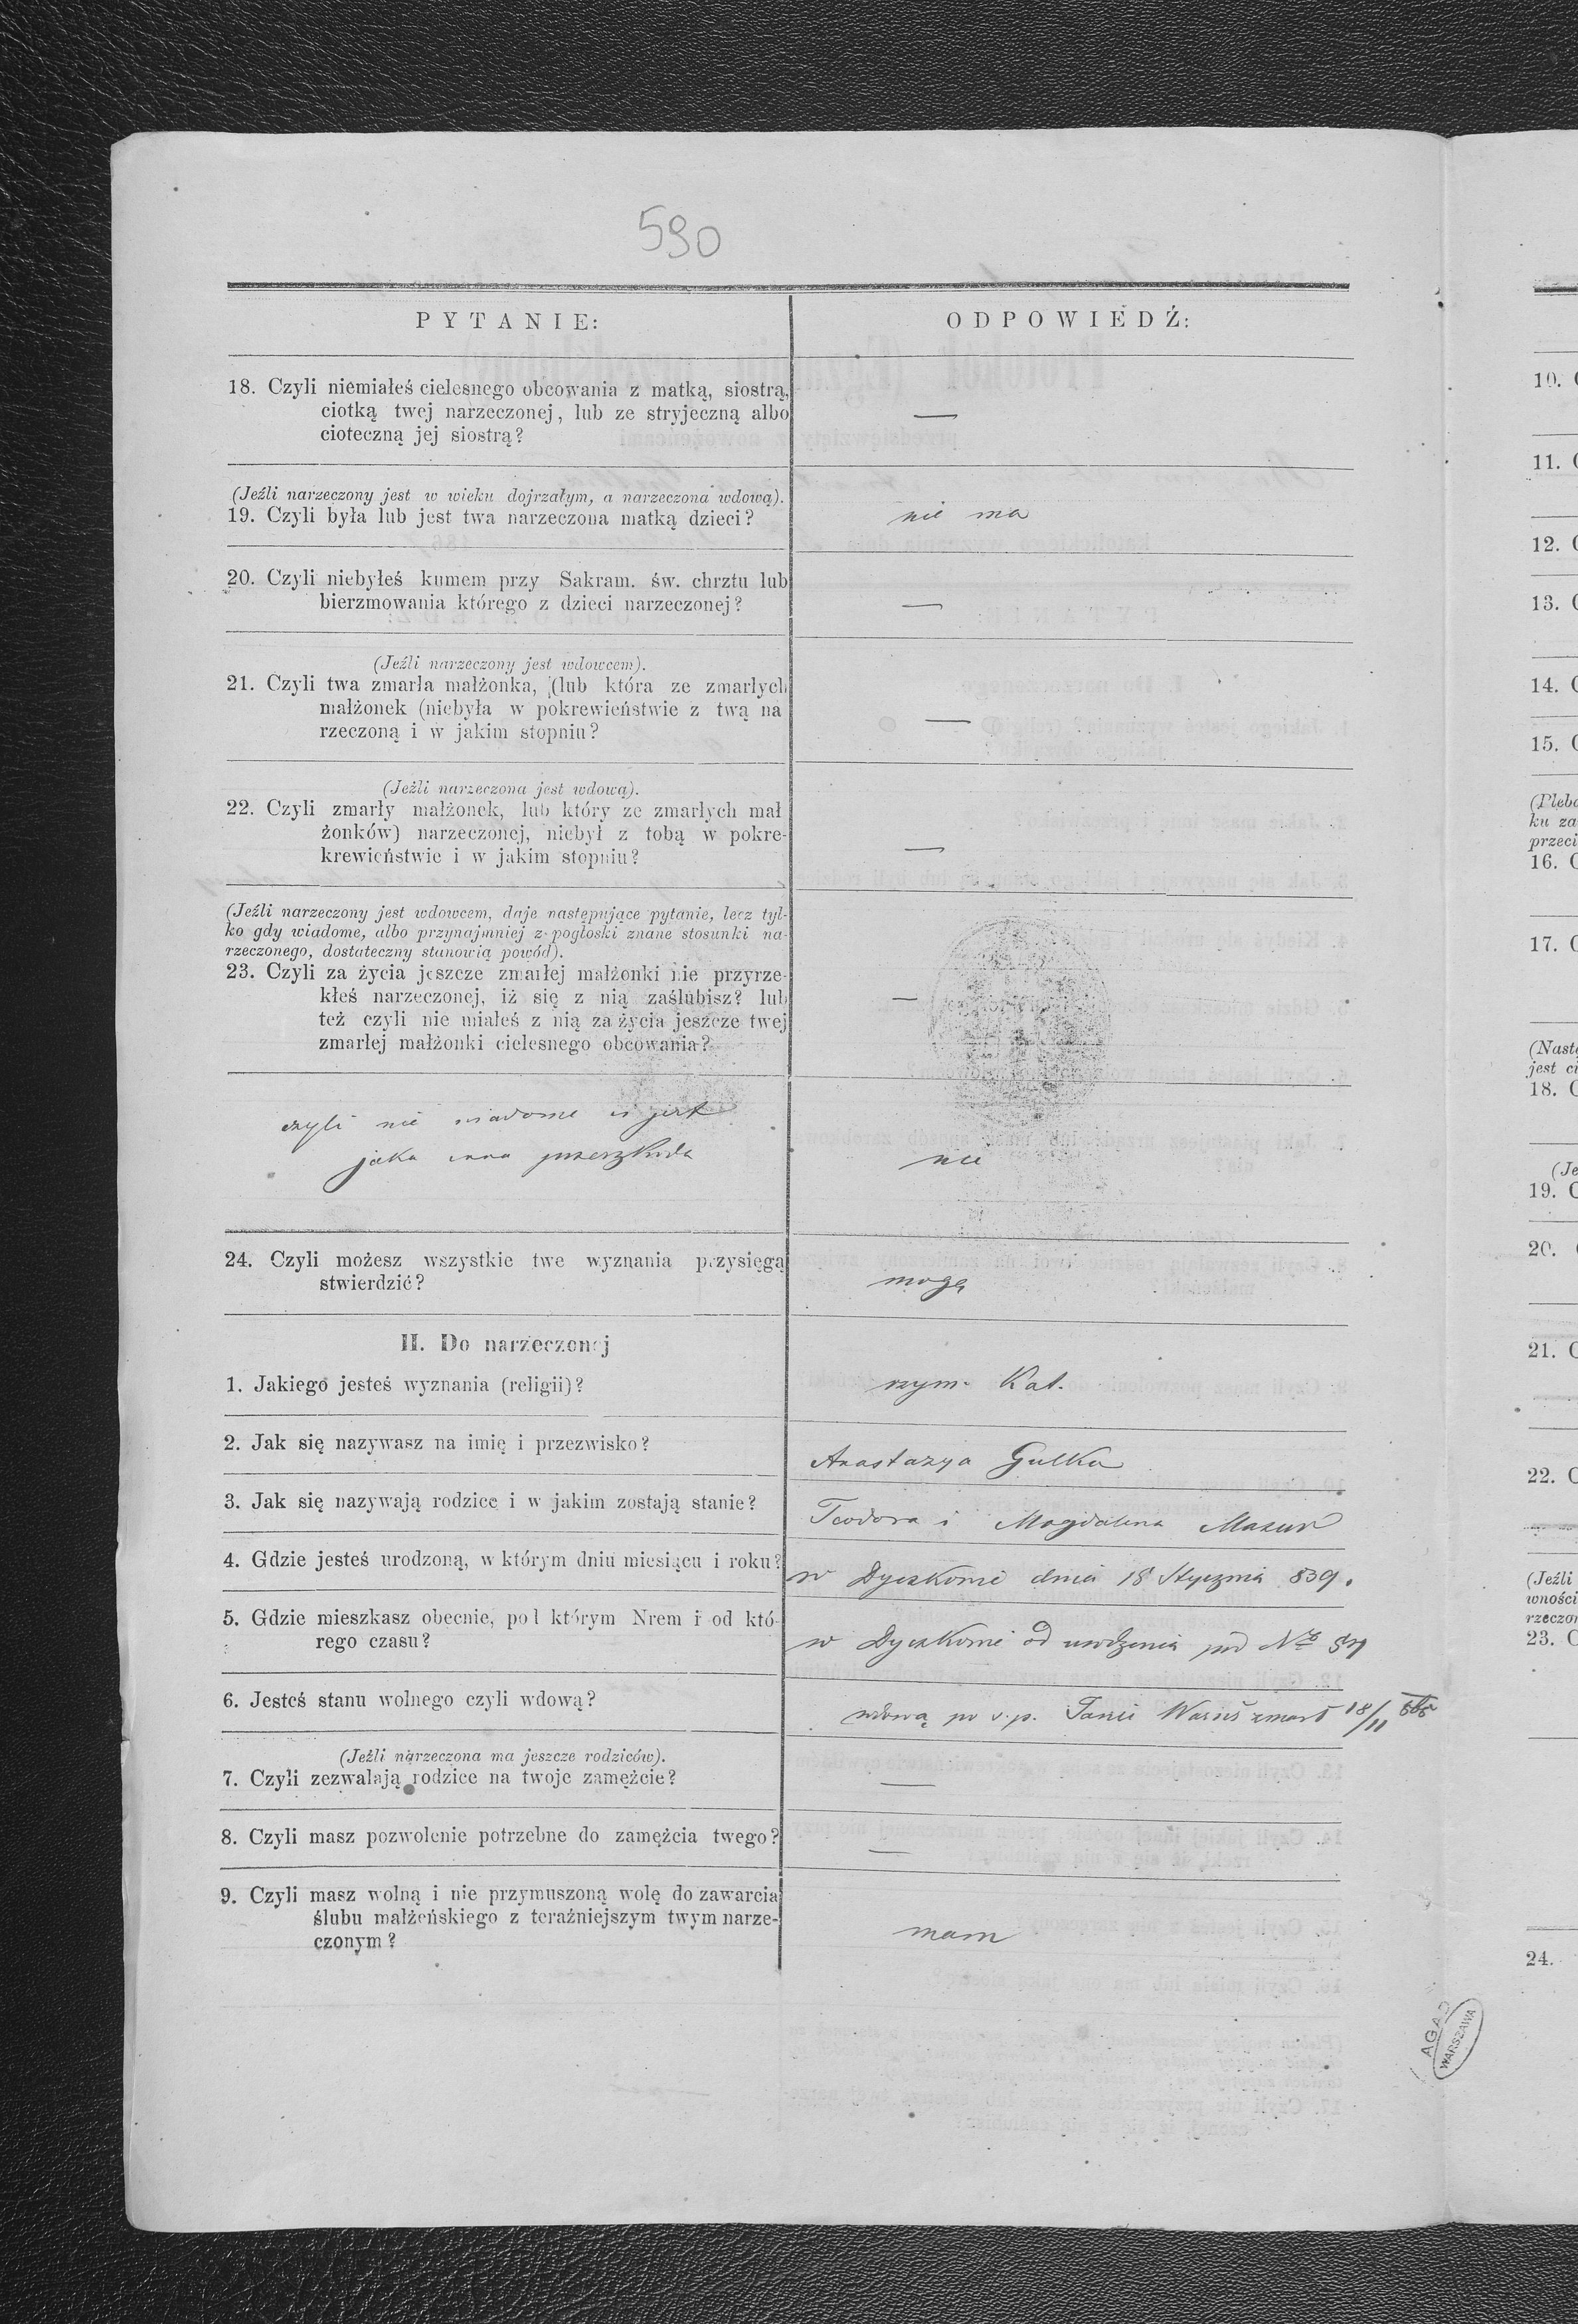 590
PYTANIE:
ODPOWIEDŹ:
18. Czyli niemiałeś cielesnego obcowania z matką, siostrą,
ciotką twej narzeczonej, lub ze stryjeczną albo
cioteczną jej siostrą?
—
(Jeźli narzeczony jest w wieku dojrzałym, a narzeczona wdową).
19. Czyli była lub jest twa narzeczona matką dzieci?
nie ma
20. Czyli niebyłeś kumem przy Sakram. św. chrztu lub
bierzmowania którego z dzieci narzeczonej?
—
(Jeźli narzeczony jest wdowcem).
21. Czyli twa zmarła małżonka, (lub która ze zmarłych
małżonek (niebyła w pokrewieństwie z twą na
rzeczoną i w jakim stopniu?
—
(Jeźli narzeczona jest wdową).
22. Czyli zmarły małżonek, lub który ze zmarłych mał
żonków) narzeczonej, niebył z tobą w pokre-
krewieństwie i w jakim stopniu?
—
(Jeźli narzeczony jest wdowcem, daje następujące pytanie, lecz tyl-
ko gdy wiadome, albo przynajmniej z pogłoski znane stosunki na-
rzeczonego, dostateczny stanowią powód).
23. Czyli za życia jeszcze zmarłej małżonki nie przyrze-
kłeś narzeczonej, iż się z nią zaślubisz? lub
też czyli nie miałeś z nią za życia jeszcze twej
zmarłej małżonki cielesnego obcowania?
—
czyli nie wiadome iż jest
jaka inna przeszkoda
nie
24. Czyli możesz wszystkie twe wyznania przysięgą
stwierdzić?
mogę
II. Do narzeczonej
1. Jakiego jesteś wyznania (religii)?
rzym. Kat.
2. Jak się nazywasz na imię i przezwisko?
Anastazya Gulka
3. Jak się nazywają rodzice i w jakim zostają stanie?
Teodora i Magdalena Mazur
4. Gdzie jesteś urodzoną, w którym dniu miesiącu i roku?
w dnia 18 Stycznia 839.
5. Gdzie mieszkasz obecnie, pod którym Nrem i od któ-
rego czasu?
w od urodzenia pod No
6. Jesteś stanu wolnego czyli wdową?
wdową po ś.p. zmarł 18/11
(Jeźli narzeczona ma jeszcze rodziców).
7. Czyli zezwalają rodzice na twoje zamężcie?
—
8. Czyli masz pozwolenie potrzebne do zamężcia twego?
—
9. Czyli masz wolną i nie przymuszoną wolę do zawarcia
ślubu małżeńskiego z teraźniejszym twym narze-
czonym?
mam
AGAD
WARSZAWA
10.
11.
12.
13.
14.
15.
ku za
przeci
16.
17.
jest ci
18.
19.
20.
21.
22.
(Jeźli
wności
rzeczon
23.
24.